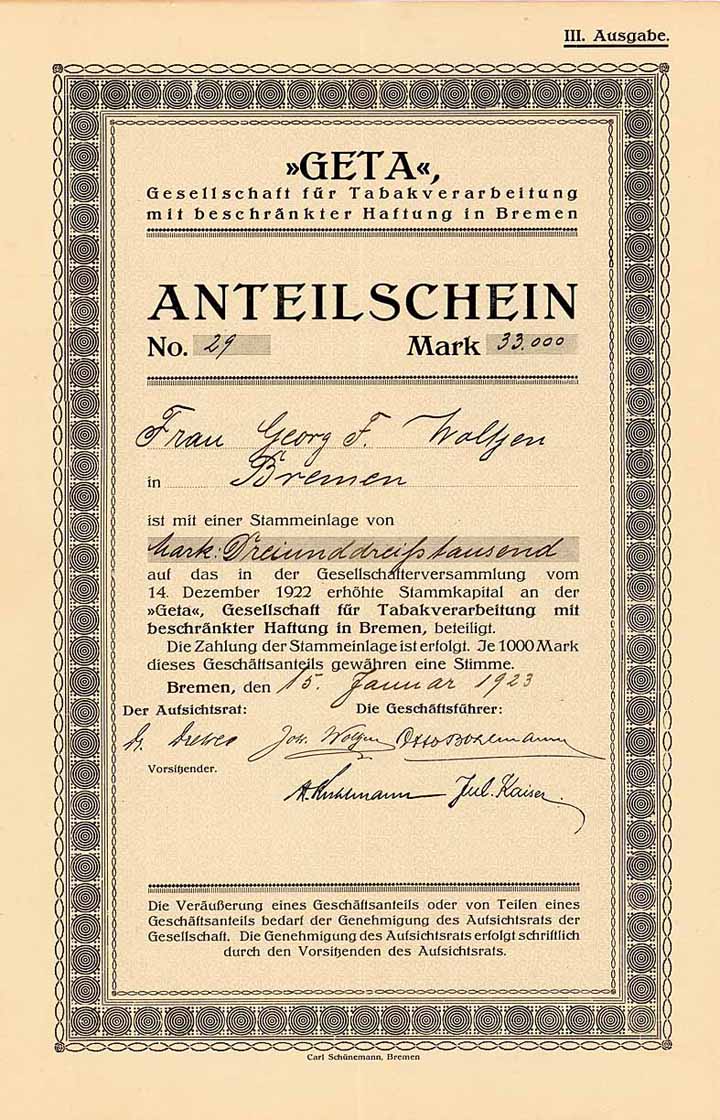 III. Ausgabe.
»GETA«,
Gesellschaft für Tabakverarbeitung
mit beschränkter Haftung in Bremen
ANTEILSCHEIN
No. 29 Mark 33.000
Frau Georg F. Woltjen
in Bremen
ist mit einer Stammeinlage von
Mark: Dreiunddreißtausend
auf das in der Gesellschafterversammlung vom
14. Dezember 1922 erhöhte Stammkapital an der
»Geta«, Gesellschaft für Tabakverarbeitung mit
beschränkter Haftung in Bremen, beteiligt.
Die Zahlung der Stammeinlage ist erfolgt. Je 1000 Mark
dieses Geschäftsanteils gewähren eine Stimme.
Bremen, den 15. Januar 1923
Der Aufsichtsrat: Die Geschäftsführer:
Joh. Otto Bohlmann
Vorsitzender.
Jul. Kaiser.
Die Veräußerung eines Geschäftsanteils oder von Teilen eines
Geschäftsanteils bedarf der Genehmigung des Aufsichtsrats der
Gesellschaft. Die Genehmigung des Aufsichtsrats erfolgt schriftlich
durch den Vorsitzenden des Aufsichtsrats.
Carl Schünemann, Bremen